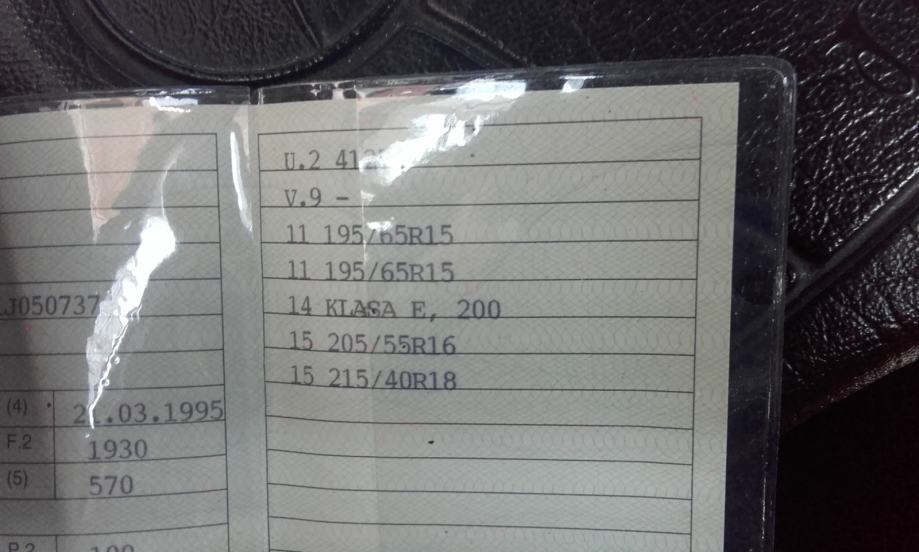 J050737
(4) 21.03.1995
F.2 1930
(5) 570
P.2
U.2
V.9 -
11 195/65R15
11 195/65R15
14 KLASA E, 200
15 205/55R16
15 215/40R18